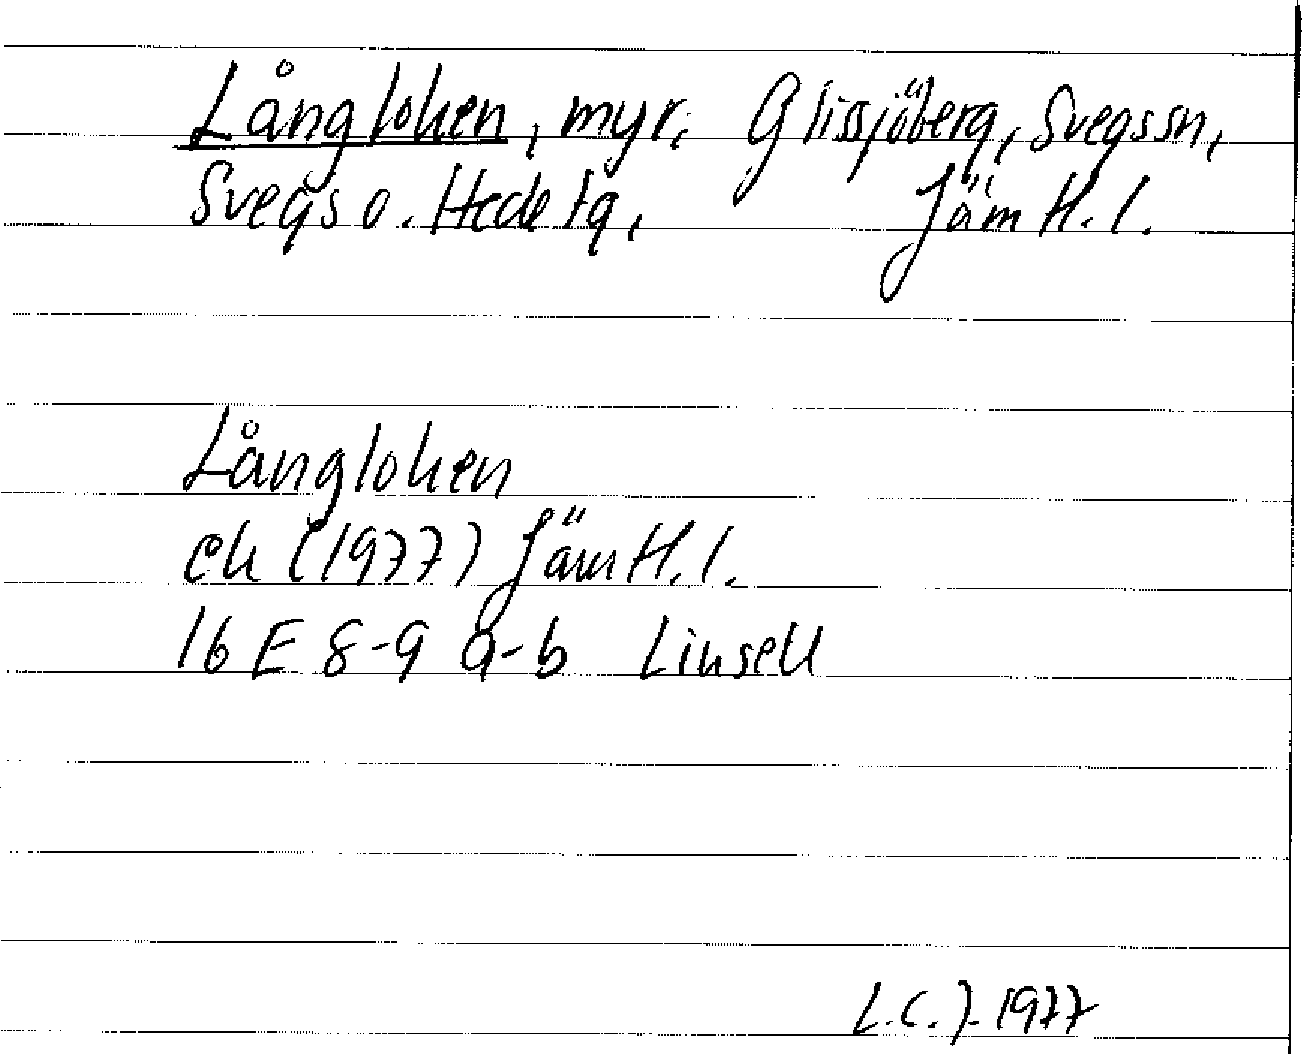 Långloken, myr, Glissjöberg, Svegs sn,
Svegs o. Hede tg, Jämtl. l.
Långloken
ek (1977) Jämtl. l.
16 E 8-9 a-b Linsell
L.C.J. 1977